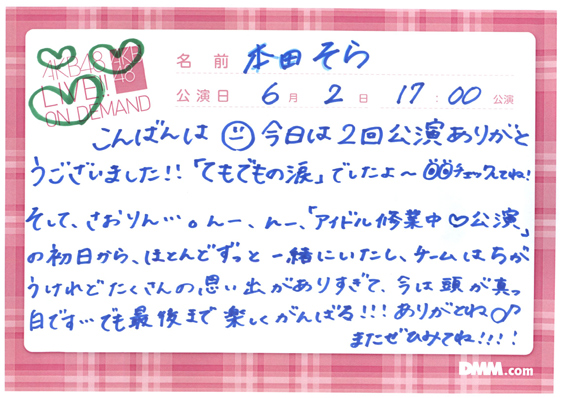 AKB48
LIVE!!
ON DEMAND
AKB
48
名前 本田そら
公演日 6月2日 17:00公演
こんばんは 今日は2回公演ありがと
うございました!!「てもでもの涙」でしたよ〜 チェックてね!
そして、さおりん…。んー、んー、「アイドル修業中♡公演」
の初日から、ほとんどずっと一緒にいたし、チームはちが
うけれどたくさんの思い出がありすぎて、今は頭が真っ
白です…でも最後まで楽しくがんばる!!!ありがとね♪
またぜひみてね!!!!
DMM.com